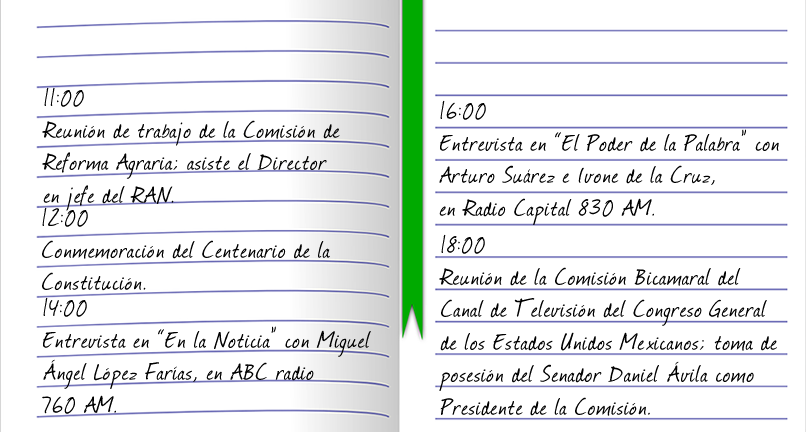 11:00
Reunión de trabajo de la Comisión de
Reforma Agraria; asiste el Director
en jefe del RAN.
12:00
Conmemoración del Centenario de la
Constitución.
14:00
Entrevista en "En la Noticia" con Miguel
Ángel López Farías, en ABC radio
760 AM.
16:00
Entrevista en "El Poder de la Palabra" con
Arturo Suárez e Ivone de la Cruz,
en Radio Capital 830 AM.
18:00
Reunión de la Comisión Bicamaral del
Canal de Televisión del Congreso General
de los Estados Unidos Mexicanos; toma de
posesión del Senador Daniel Ávila como
Presidente de la Comisión.